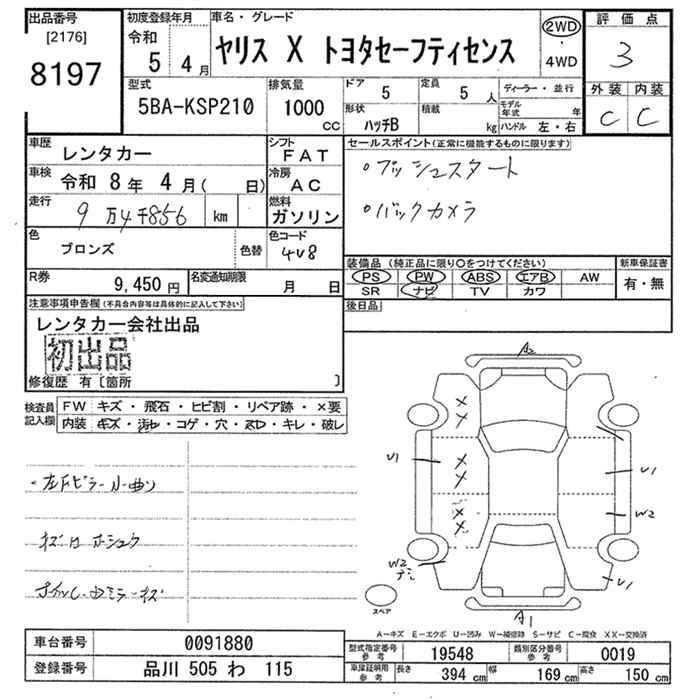 出品番号
[2176]
8197
初度登録年月
令和
5 4 月
車名・グレード
ヤリス X トヨタセーフティセンス
2WD
・
4WD
評価点
3
外装 内装
C C
型式
5BA-KSP210
排気量
1000
CC
ドア
5
定員
5 人
形状
ハッチB
積載
kg
ディーラー・並行
モデル年式 年
ハンドル 左・右
車歴
レンタカー
シフト
FAT
車検
令和 8年 4月( 日)
冷房
AC
走行
9万4千856 km
燃料
ガソリン
色
ブロンズ
色替
色コード
4V8
R券
9,450 円
名変通知期限
月 日
セールスポイント(正常に機能するものに限ります)
・プッシュスタート
・バックカメラ
装備品(純正品に限り○をつけてください)
PS PW ABS エアB AW
SR ナビ TV カワ
新車保証書
有・無
後日品
注意事項申告欄(不具合内容等は具体的に記入して下さい)
レンタカー会社出品
初出品
修復歴 有〔箇所 〕
検査員
記入欄
FW キズ・飛石・ヒビ割・リペア跡・×要
内装 キズ・汚レ・コゲ・穴・スレ・キレ・破レ
キズ
A2
U1
U1
W2
W2
U1
A1
スペア
A-キズ E-エクボ U-凹み W-補修跡 S-サビ C-腐食 XX-交換済
車台番号 0091880
登録番号 品川 505 わ 115
型式指定番号
参考
19548
類別区分番号
参考
0019
車庫証明用
参考
長さ 394 cm
幅 169 cm
高さ 150 cm